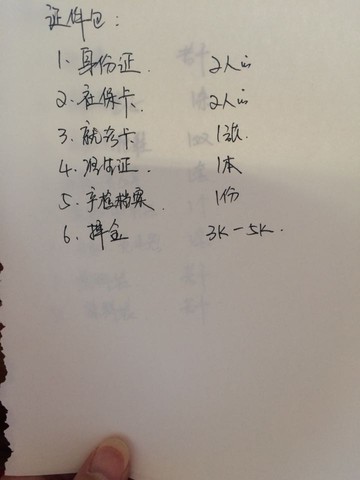 证件包：
1、身份证 2人的
2、社保卡 2人的
3、就诊卡 1张
4、准生证 1本
5、产检档案 1份
6、押金 3K－5K.